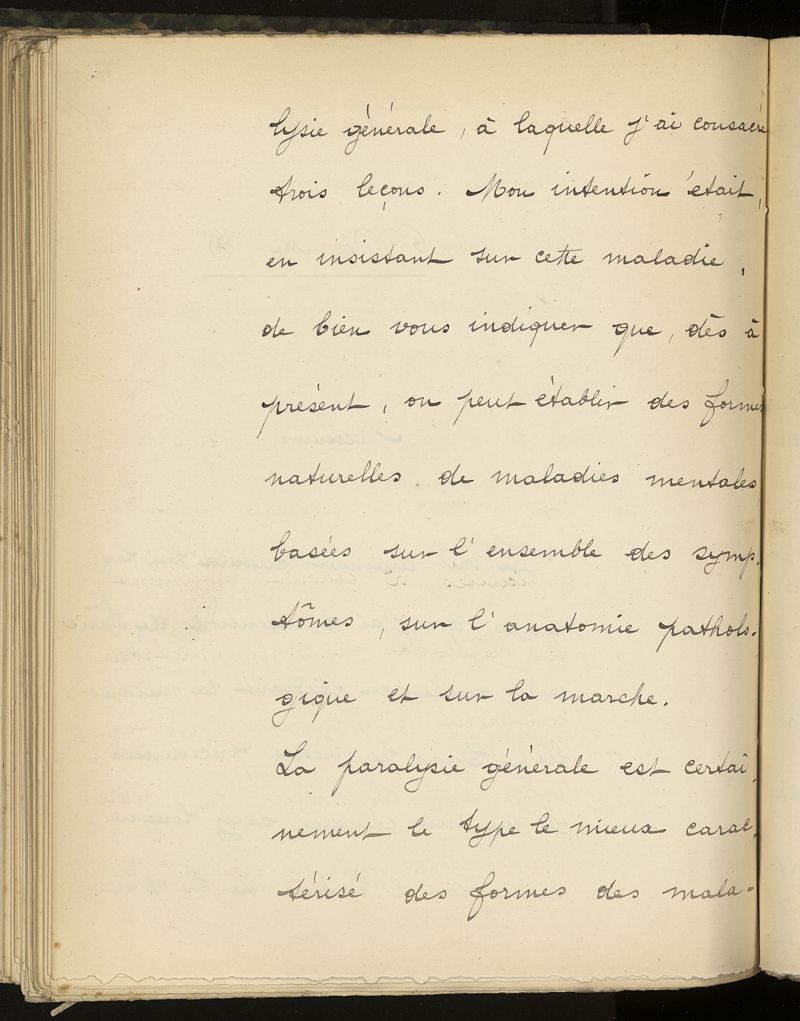 lysie générale, à laquelle j'ai consacré
trois leçons. Mon intention était,
en insistant sur cette maladie,
de bien vous indiquer que, dès à
présent, on peut établir des formes
naturelles de maladies mentales
basées sur l'ensemble des symp-
tômes, sur l'anatomie patholo-
gique et sur la marche.
La paralysie générale est certai-
nement le type le mieux carac-
térisé des formes des mala-